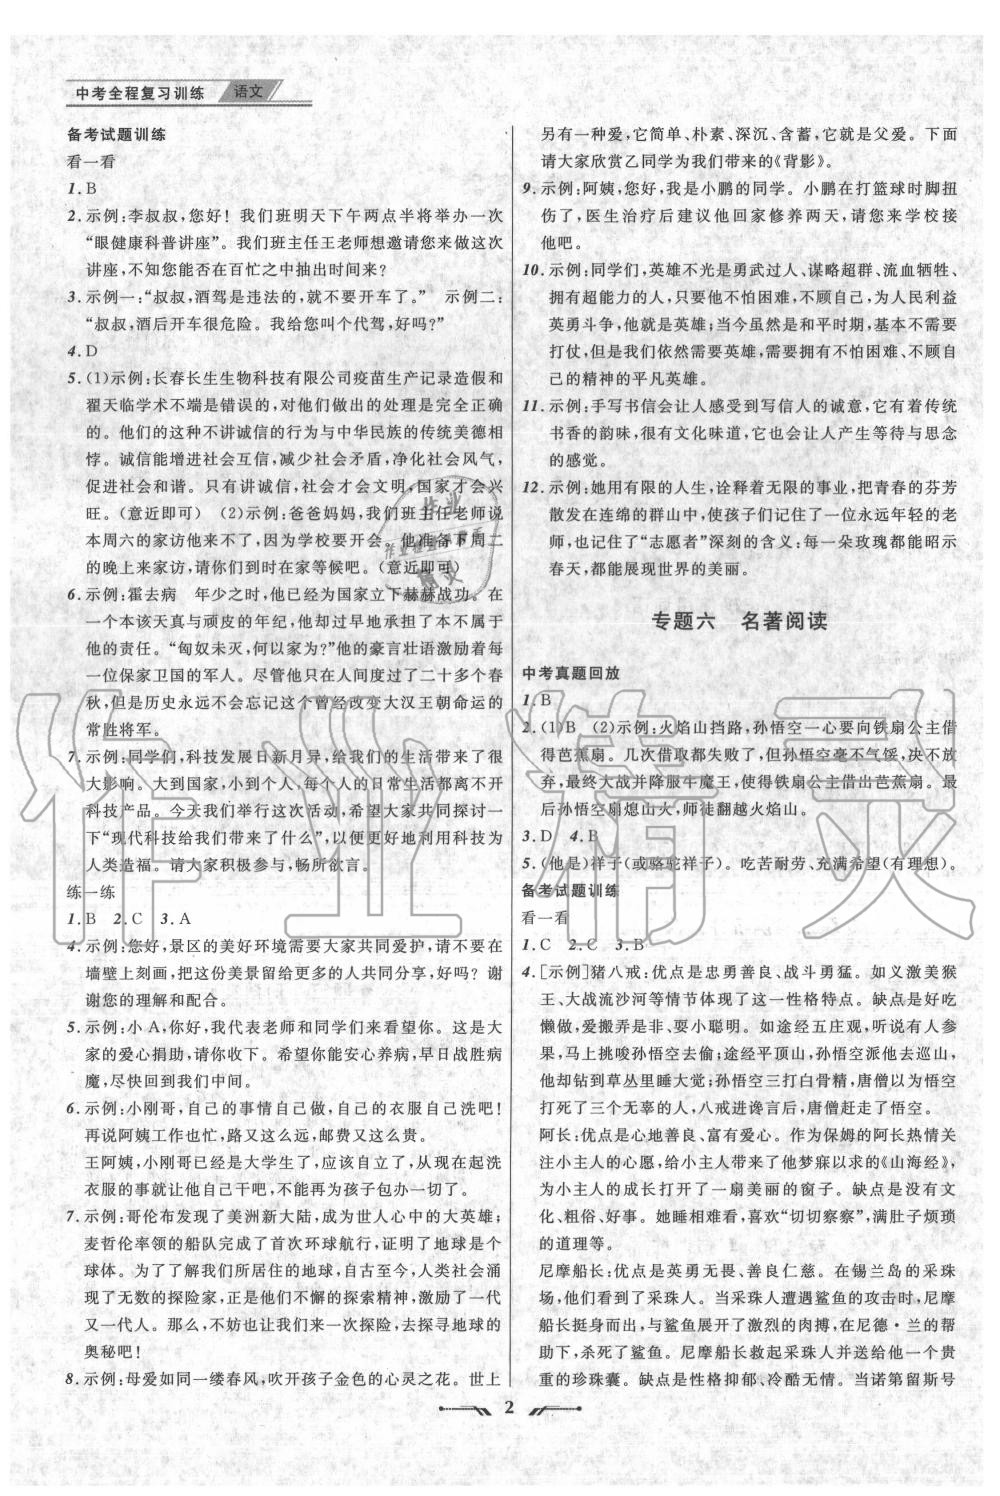 中考全程复习训练 语文
备考试题训练
看一看
1. B
2. 示例:李叔叔,您好！我们班明天下午两点半将举办一次
“眼健康科普讲座”。我们班主任王老师想邀请您来做这次
讲座,不知您能否在百忙之中抽出时间来?
3. 示例一:“叔叔,酒驾是违法的,就不要开车了。” 示例二:
“叔叔,酒后开车很危险。我给您叫个代驾,好吗?”
4. D
5. (1)示例:长春长生生物科技有限公司疫苗生产记录造假和
翟天临学术不端是错误的,对他们做出的处理是完全正确
的。他们的这种不讲诚信的行为与中华民族的传统美德相
悖。诚信能增进社会互信,减少社会矛盾,净化社会风气,
促进社会和谐。只有讲诚信,社会才会文明,国家才会兴
旺。(意近即可) (2)示例:爸爸妈妈,我们班主任老师说
本周六的家访他来不了了,因为学校要开会。他准备下周二
的晚上来家访,请你们到时在家等候吧。(意近即可)
6. 示例:霍去病 年少之时,他已经为国家立下赫赫战功。在
一个本该天真与顽皮的年纪,他却过早地承担了本不属于
他的责任。“匈奴未灭,何以家为?”他的豪言壮语激励着每
一位保家卫国的军人。尽管他只在人间度过了二十多个春
秋,但是历史永远不会忘记这个曾经改变大汉王朝命运的
常胜将军。
7. 示例:同学们,科技发展日新月异,给我们的生活带来了很
大影响。大到国家,小到个人,每个人的日常生活都离不开
科技产品。今天我们举行这次活动,希望大家共同探讨一
下“现代科技给我们带来了什么”,以便更好地利用科技为
人类造福。请大家积极参与,畅所欲言。
练一练
1. B 2. C 3. A
4. 示例:您好,景区的美好环境需要大家共同爱护,请不要在
墙壁上刻画,把这份美景留给更多的人共同分享,好吗？谢
谢您的理解和配合。
5. 示例:小A,你好,我代表老师和同学们来看望你。这是大
家的爱心捐助,请你收下。希望你能安心养病,早日战胜病
魔,尽快回到我们中间。
6. 示例:小刚哥,自己的事情自己做,自己的衣服自己洗吧！
再说阿姨工作也忙,路又这么远,邮费又这么贵。
王阿姨,小刚哥已经是大学生了,应该自立了,从现在起洗
衣服的事就让他自己干吧,不能再为孩子包办一切了。
7. 示例:哥伦布发现了美洲新大陆,成为世人心中的大英雄;
麦哲伦率领的船队完成了首次环球航行,证明了地球是个
球体。为了了解我们所居住的地球,自古至今,人类社会涌
现了无数的探险家,正是他们不懈的探索精神,激励了一代
又一代人。那么,不妨也让我们来一次探险,去探寻地球的
奥秘吧！
8. 示例:母爱如同一缕春风,吹开孩子金色的心灵之花。世上
另有一种爱,它简单、朴素、深沉、含蓄,它就是父爱。下面
请大家欣赏乙同学为我们带来的《背影》。
9. 示例:阿姨,您好,我是小鹏的同学。小鹏在打篮球时脚扭
伤了,医生治疗后建议他回家修养两天,请您来学校接
他吧。
10. 示例:同学们,英雄不光是勇武过人、谋略超群、流血牺牲、
拥有超能力的人,只要他不怕困难,不顾自己,为人民利益
英勇斗争,他就是英雄;当今虽然是和平时期,基本不需要
打仗,但是我们依然需要英雄,需要不怕困难、不顾自己
的精神的平凡英雄。
11. 示例:手写书信会让人感受到写信人的诚意,它有着传统
书香的韵味,很有文化味道,它也会让人产生等待与思念
的感觉。
12. 示例:她用有限的人生,诠释着无限的事业,把青春的芬芳
散发在连绵的群山中,使孩子们记住了一位永远年轻的老
师,也记住了“志愿者”深刻的含义:每一朵玫瑰都能昭示
春天,都能展现世界的美丽。
专题六 名著阅读
中考真题回放
1. B
2. (1)B (2)示例:火焰山挡路,孙悟空一心要向铁扇公主借
得芭蕉扇。几次借取都失败了,但孙悟空毫不气馁,决不放
弃,最终大战并降服牛魔王,使得铁扇公主借出芭蕉扇。最
后孙悟空扇熄山火,师徒翻越火焰山。
3. D 4. B
5. (他是)祥子(或骆驼祥子)。吃苦耐劳、充满希望(有理想)。
备考试题训练
看一看
1. C 2. C 3. B
4. [示例]猪八戒:优点是忠勇善良、战斗勇猛。如义激美猴
王、大战流沙河等情节体现了这一性格特点。缺点是好吃
懒做,爱搬弄是非、耍小聪明。如途经五庄观,听说有人参
果,马上挑唆孙悟空去偷;途经平顶山,孙悟空派他去巡山,
他却钻到草丛里睡大觉;孙悟空三打白骨精,唐僧以为悟空
打死了三个无辜的人,八戒进谗言后,唐僧赶走了悟空。
阿长:优点是心地善良、富有爱心。作为保姆的阿长热情关
注小主人的心愿,给小主人带来了他梦寐以求的《山海经》,
为小主人的成长打开了一扇美丽的窗子。缺点是没有文
化、粗俗、好事。她睡相难看,喜欢“切切察察”,满肚子烦琐
的道理等。
尼摩船长:优点是英勇无畏、善良仁慈。在锡兰岛的采珠
场,他们看到了采珠人。当采珠人遭遇鲨鱼的攻击时,尼摩
船长挺身而出,与鲨鱼展开了激烈的肉搏,在尼德·兰的帮
助下,杀死了鲨鱼。尼摩船长救起采珠人并送给他一个贵
重的珍珠囊。缺点是性格抑郁、冷酷无情。当诺第留斯号
2